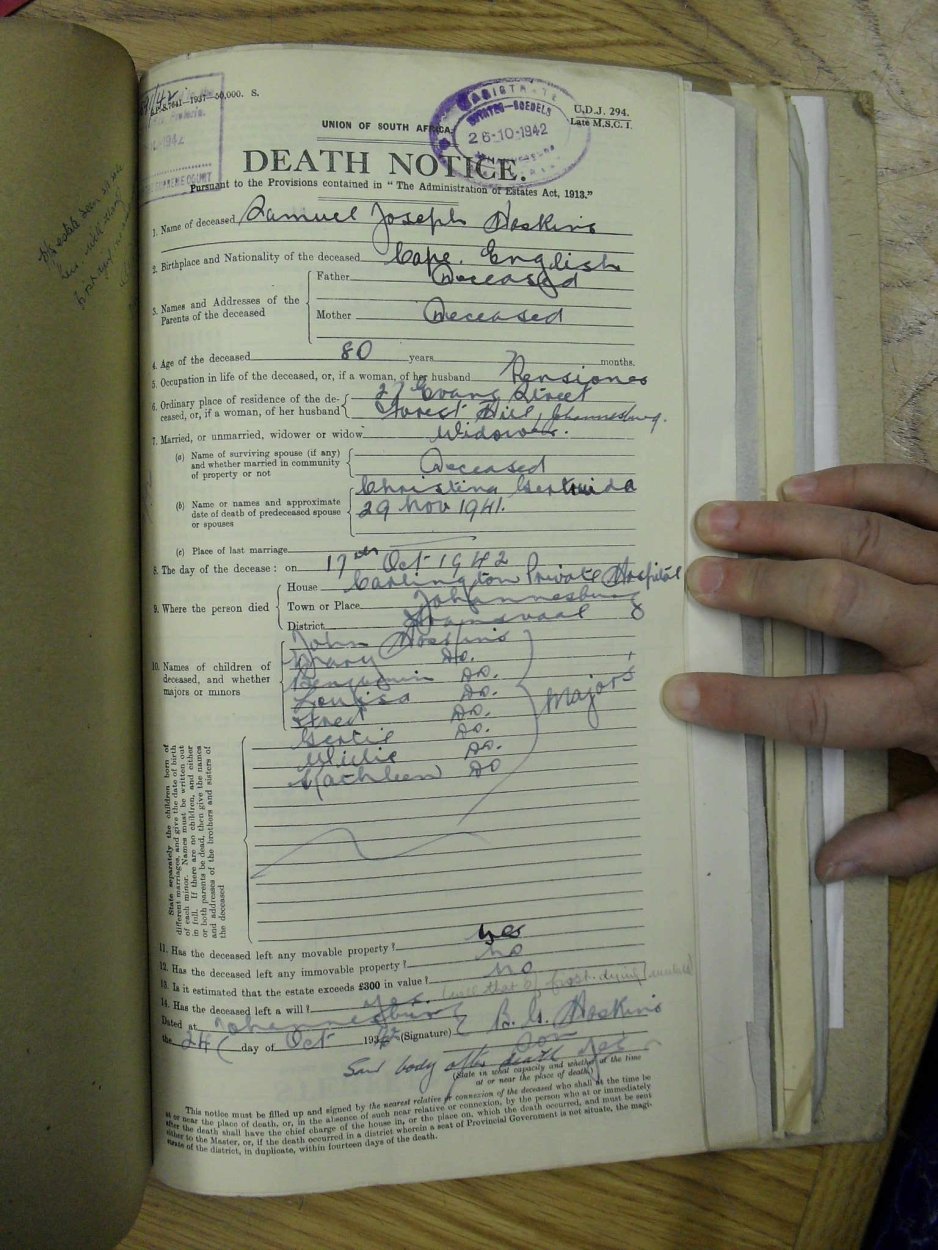 S.7641—1937—50,000. S.
U.D.J. 294.
Late M.S.C. 1.
MAGISTRATE
26-10-1942
1942
SUPREME COURT
UNION OF SOUTH AFRICA.
DEATH NOTICE.
Pursuant to the Provisions contained in "The Administration of Estates Act, 1913."
1. Name of deceased Samuel Joseph Hoskins
2. Birthplace and Nationality of the deceased Cape. English
3. Names and Addresses of the Parents of the deceased
Father Deceased
Mother Deceased
4. Age of the deceased 80 years 7 months.
5. Occupation in life of the deceased, or, if a woman, of her husband Pensioner
6. Ordinary place of residence of the deceased, or, if a woman, of her husband
27 Evans Street
Forest Hill, Johannesburg.
7. Married, or unmarried, widower or widow Widower.
(a) Name of surviving spouse (if any) and whether married in community of property or not
Deceased
(b) Name or names and approximate date of death of predeceased spouse or spouses
Christina Gertruida
29 Nov 1941.
(c) Place of last marriage
8. The day of the decease: on 17th Oct 1942
9. Where the person died
House Carlington Private Hospital
Town or Place Johannesburg
District Transvaal
10. Names of children of deceased, and whether majors or minors
John Hoskins
Mary Do.
Benjamin Do.
Louisa Do.
Do.
Gertie Do.
Willie Do.
Kathleen Do
Majors
State separately the children born of different marriages, and give the date of birth of each minor. Names must be written out in full. If there are no children, and either or both parents be dead, then give the names and addresses of the brothers and sisters of the deceased
11. Has the deceased left any movable property? yes
12. Has the deceased left any immovable property? no
13. Is it estimated that the estate exceeds £300 in value? no
14. Has the deceased left a will? yes. (will that of first-dying)
Dated at Johannesburg
the 24 day of Oct 1942 (Signature) B. G. Hoskins
Son
Saw body after death yes
(State in what capacity and whether at the time at or near the place of death)
This notice must be filled up and signed by the nearest relative or connexion of the deceased who shall at the time be
at or near the place of death, or, in the absence of such near relative or connexion, by the person who at or immediately
after the death shall have the chief charge of the house in, or the place on, which the death occurred, and must be sent
either to the Master, or, if the death occurred in a district wherein a seat of Provincial Government is not situate, the magi-
strate of the district, in duplicate, within fourteen days of the death.